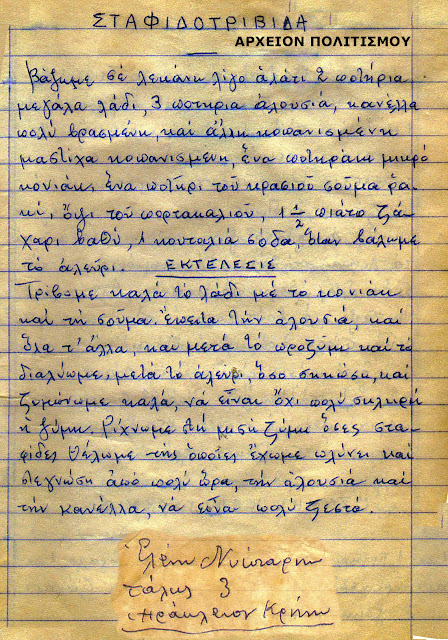 ΣΤΑΦΙΔΟΤΡΙΒΙΔΑ
ΑΡΧΕΙΟΝ ΠΟΛΙΤΙΣΜΟΥ
Βάζωμε σέ λεκάνη λίγο ἁλάτι 2 ποτήρια
μεγάλα λάδι, 3 ποτηρια ἁλουσιά, κανέλλα
πολύ βρασμένη, καί ἄλλη κοπανισμένη
μαστίχα κοπανισμενη, ἕνα ποτηράκι μικρό
κονιάκ, ἕνα ποτῆρι τοῦ κρασιοῦ σοῦμα ῥα-
κί, ὄχι τοῦ πορτοκαλιοῦ, 1 1/2 πιάτο ζά-
χαρι βαθύ, 1 κουταλιά σόδα, ὅταν βάλωμε
τό ἀλεύρι. ΕΚΤΕΛΕΣΙΣ
Τρίβομε καλά τό λάδι μέ τό κονιάκ
καί τή σοῦμα. Ἔπειτα τήν ἀλουσιά, καί
ὅλα τ' ἄλλα, καί μετά τό προζύμι καί τό
διαλύωμε, μετά τό ἀλεύρι, ὅσο σηκώσει, καί
ζυμώνωμε καλά, νά εἶναι ὄχι πολύ σκληρή
ἡ ζύμη. Ρίχνωμε στή μισή ζύμη ὅσες στα-
φίδες θέλωμε τής ὁποῖες ἔχωμε πλύνει καί
στεγνώση ἀπό πολύ ὥρα, τήν ἀλουσιά καί
τήν κανέλλα, νά εἶναι πολύ ζεστά.
Ἑλένη
3
Ηράκλειον Κρήτης